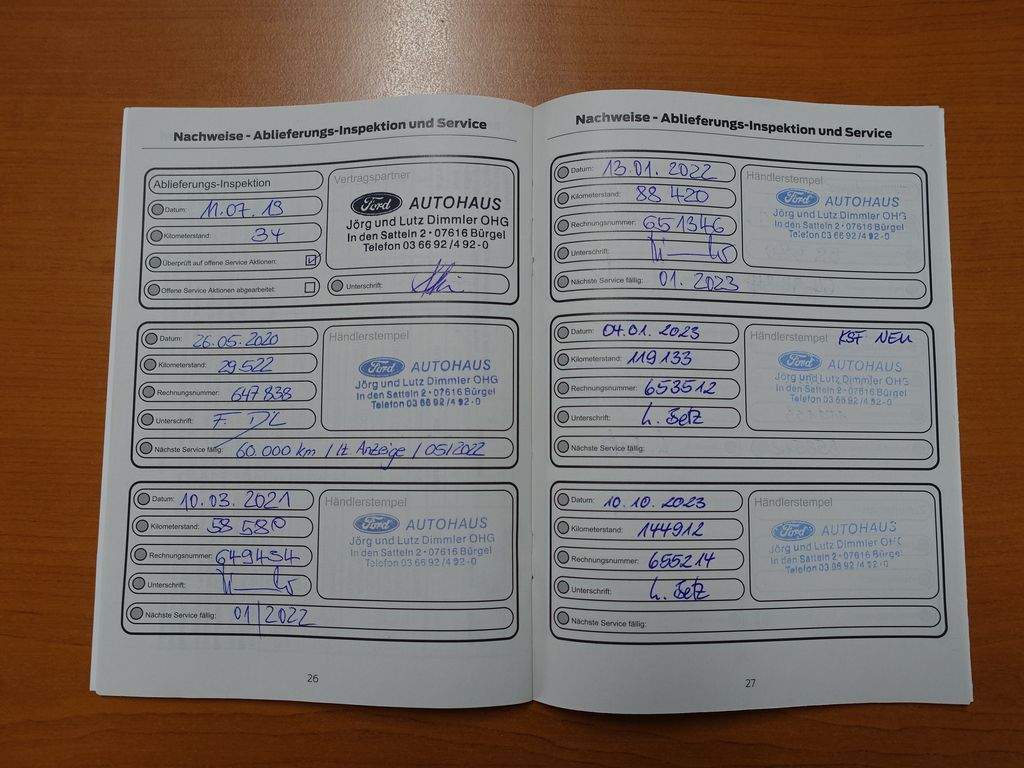 Nachweise - Ablieferungs-Inspektion und Service
Ablieferungs-Inspektion
Datum: 11.07.19
Kilometerstand: 34
Überprüft auf offene Service Aktionen:
Offene Service Aktionen abgearbeitet:
Vertragspartner
Ford AUTOHAUS
Jörg und Lutz Dimmler OHG
In den Satteln 2 • 07616 Bürgel
Telefon 03 66 92 / 4 92 - 0
Unterschrift:
Datum: 26.05.2020
Kilometerstand: 29.522
Rechnungsnummer: 647838
Unterschrift:
Nächste Service fällig: 60.000 km / lt. Anzeige / 05/2022
Händlerstempel
Ford AUTOHAUS
Jörg und Lutz Dimmler OHG
In den Satteln 2 • 07616 Bürgel
Telefon 03 66 92 / 4 92 - 0
Datum: 10.03.2021
Kilometerstand: 58 580
Rechnungsnummer: 649454
Unterschrift:
Nächste Service fällig: 01/2022
Händlerstempel
Ford AUTOHAUS
Jörg und Lutz Dimmler OHG
In den Satteln 2 • 07616 Bürgel
Telefon 03 66 92 / 4 92 - 0
26
Nachweise - Ablieferungs-Inspektion und Service
Datum: 13.01.2022
Kilometerstand: 88 420
Rechnungsnummer: 651346
Unterschrift:
Nächste Service fällig: 01.2023
Händlerstempel
Ford AUTOHAUS
Jörg und Lutz Dimmler OHG
In den Satteln 2 • 07616 Bürgel
Telefon 03 66 92 / 4 92 - 0
Datum: 04.01.2023
Kilometerstand: 119133
Rechnungsnummer: 653512
Unterschrift:
Nächste Service fällig:
Händlerstempel KSF NEU
Ford AUTOHAUS
Jörg und Lutz Dimmler OHG
In den Satteln 2 • 07616 Bürgel
Telefon 03 66 92 / 4 92 - 0
Datum: 10.10.2023
Kilometerstand: 144912
Rechnungsnummer: 655214
Unterschrift:
Nächste Service fällig:
Händlerstempel
Ford AUTOHAUS
Jörg und Lutz Dimmler OHG
In den Satteln 2 • 07616 Bürgel
Telefon 03 66 92 / 4 92 - 0
27